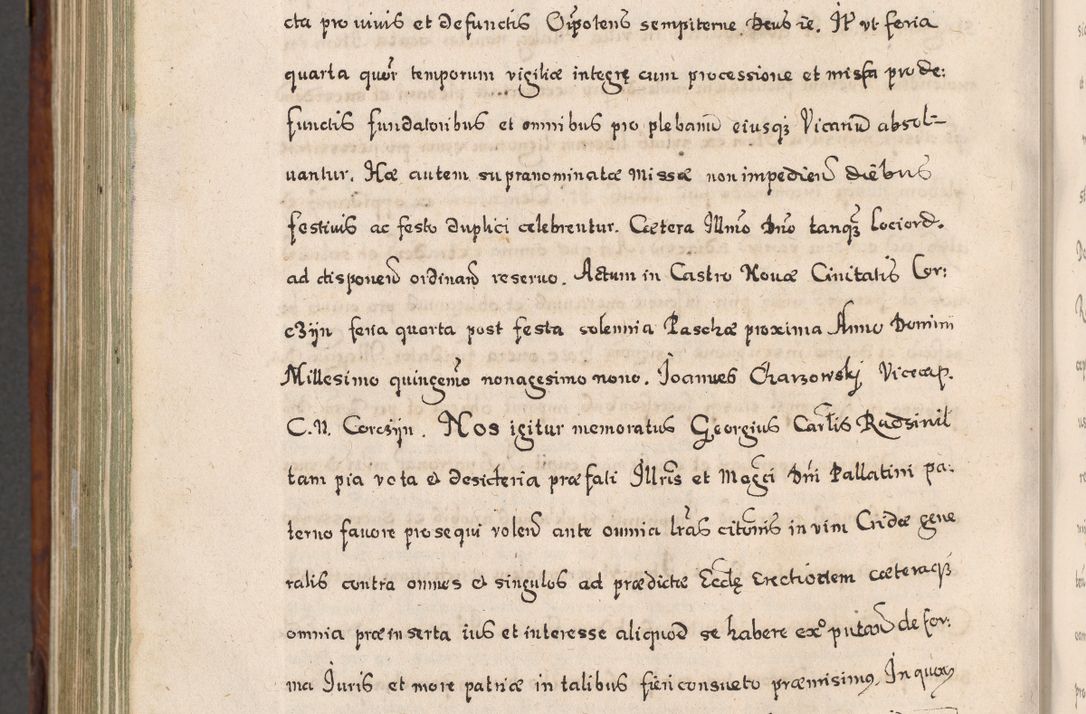 cta pro vivis et defunctis Oīpotens sempiterne Deus ię. It vt feria
quarta quor temporum vigiliæ integrę cum processione et missa pro de:
functis fundatoribus et omnibus pro plebanū eiusq₃ Vicariū absol-
uantur. Hæ autem supranominatæ Missæ non impedien diebus
festivis ac festo duplici celebrentur. Cætera Illmo Dno tanq₃ lociord.
ad disponen ordinan reservo. Actum in Castro Novæ Civitatis Cor:
czÿn feria quarta post festa solennia Paschæ proxima Anno Domini
Millesimo quingemo nonagesimo nono. Joannes Charzowskj Vicecap.
C. N. Corczÿn. Nos igitur memoratus Georgius Carlis Radzivil
tam pia vota et desideria præfati Illris et Magci Dni Pallatini pa:
terno favore prosequi volen ante omnia lras citonis in vim Cridæ gene
ralis contra omnes et singulos ad prædictæ Ecclę Erectionem cæteraq₃
omnia præinserta ius et interesse aliquod se habere exo putan de for:
ma Juris et more patriæ in talibus fieri consueto præmisimus. In quor